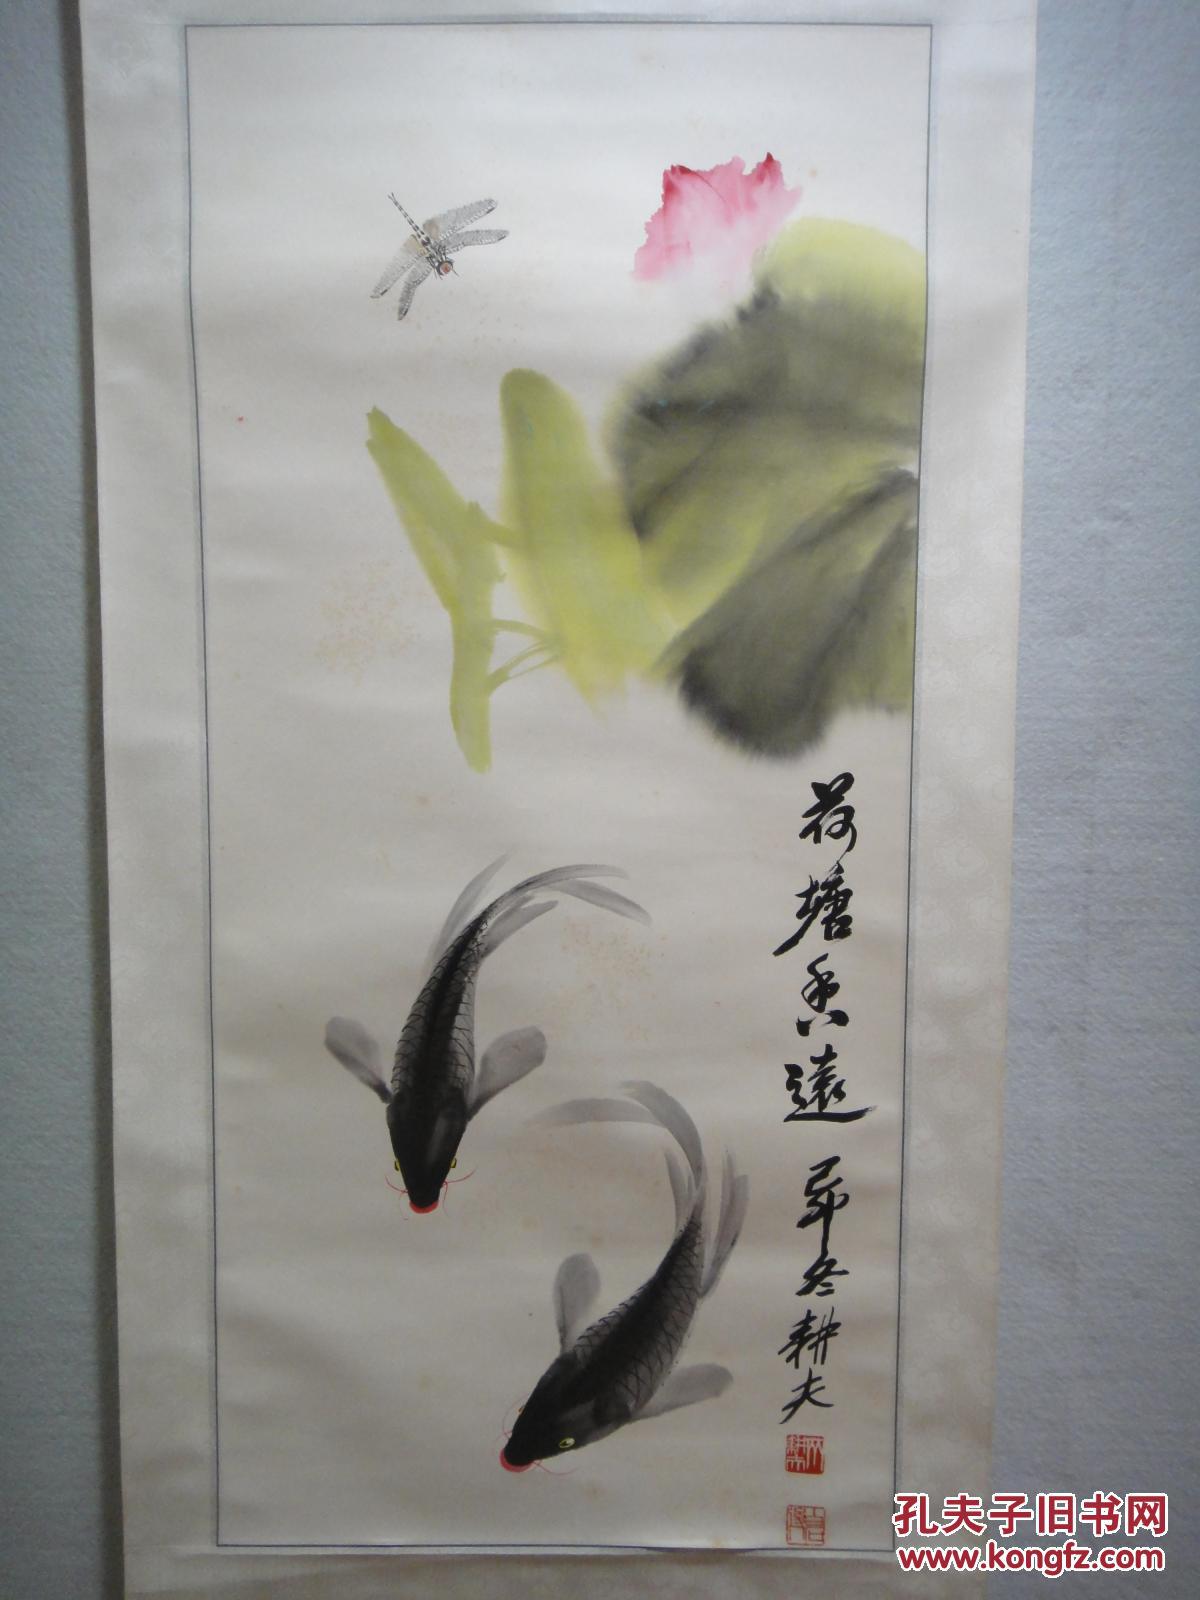 荷塘香遠
己卯冬耕夫
孔夫子旧书网
www.kongfz.com